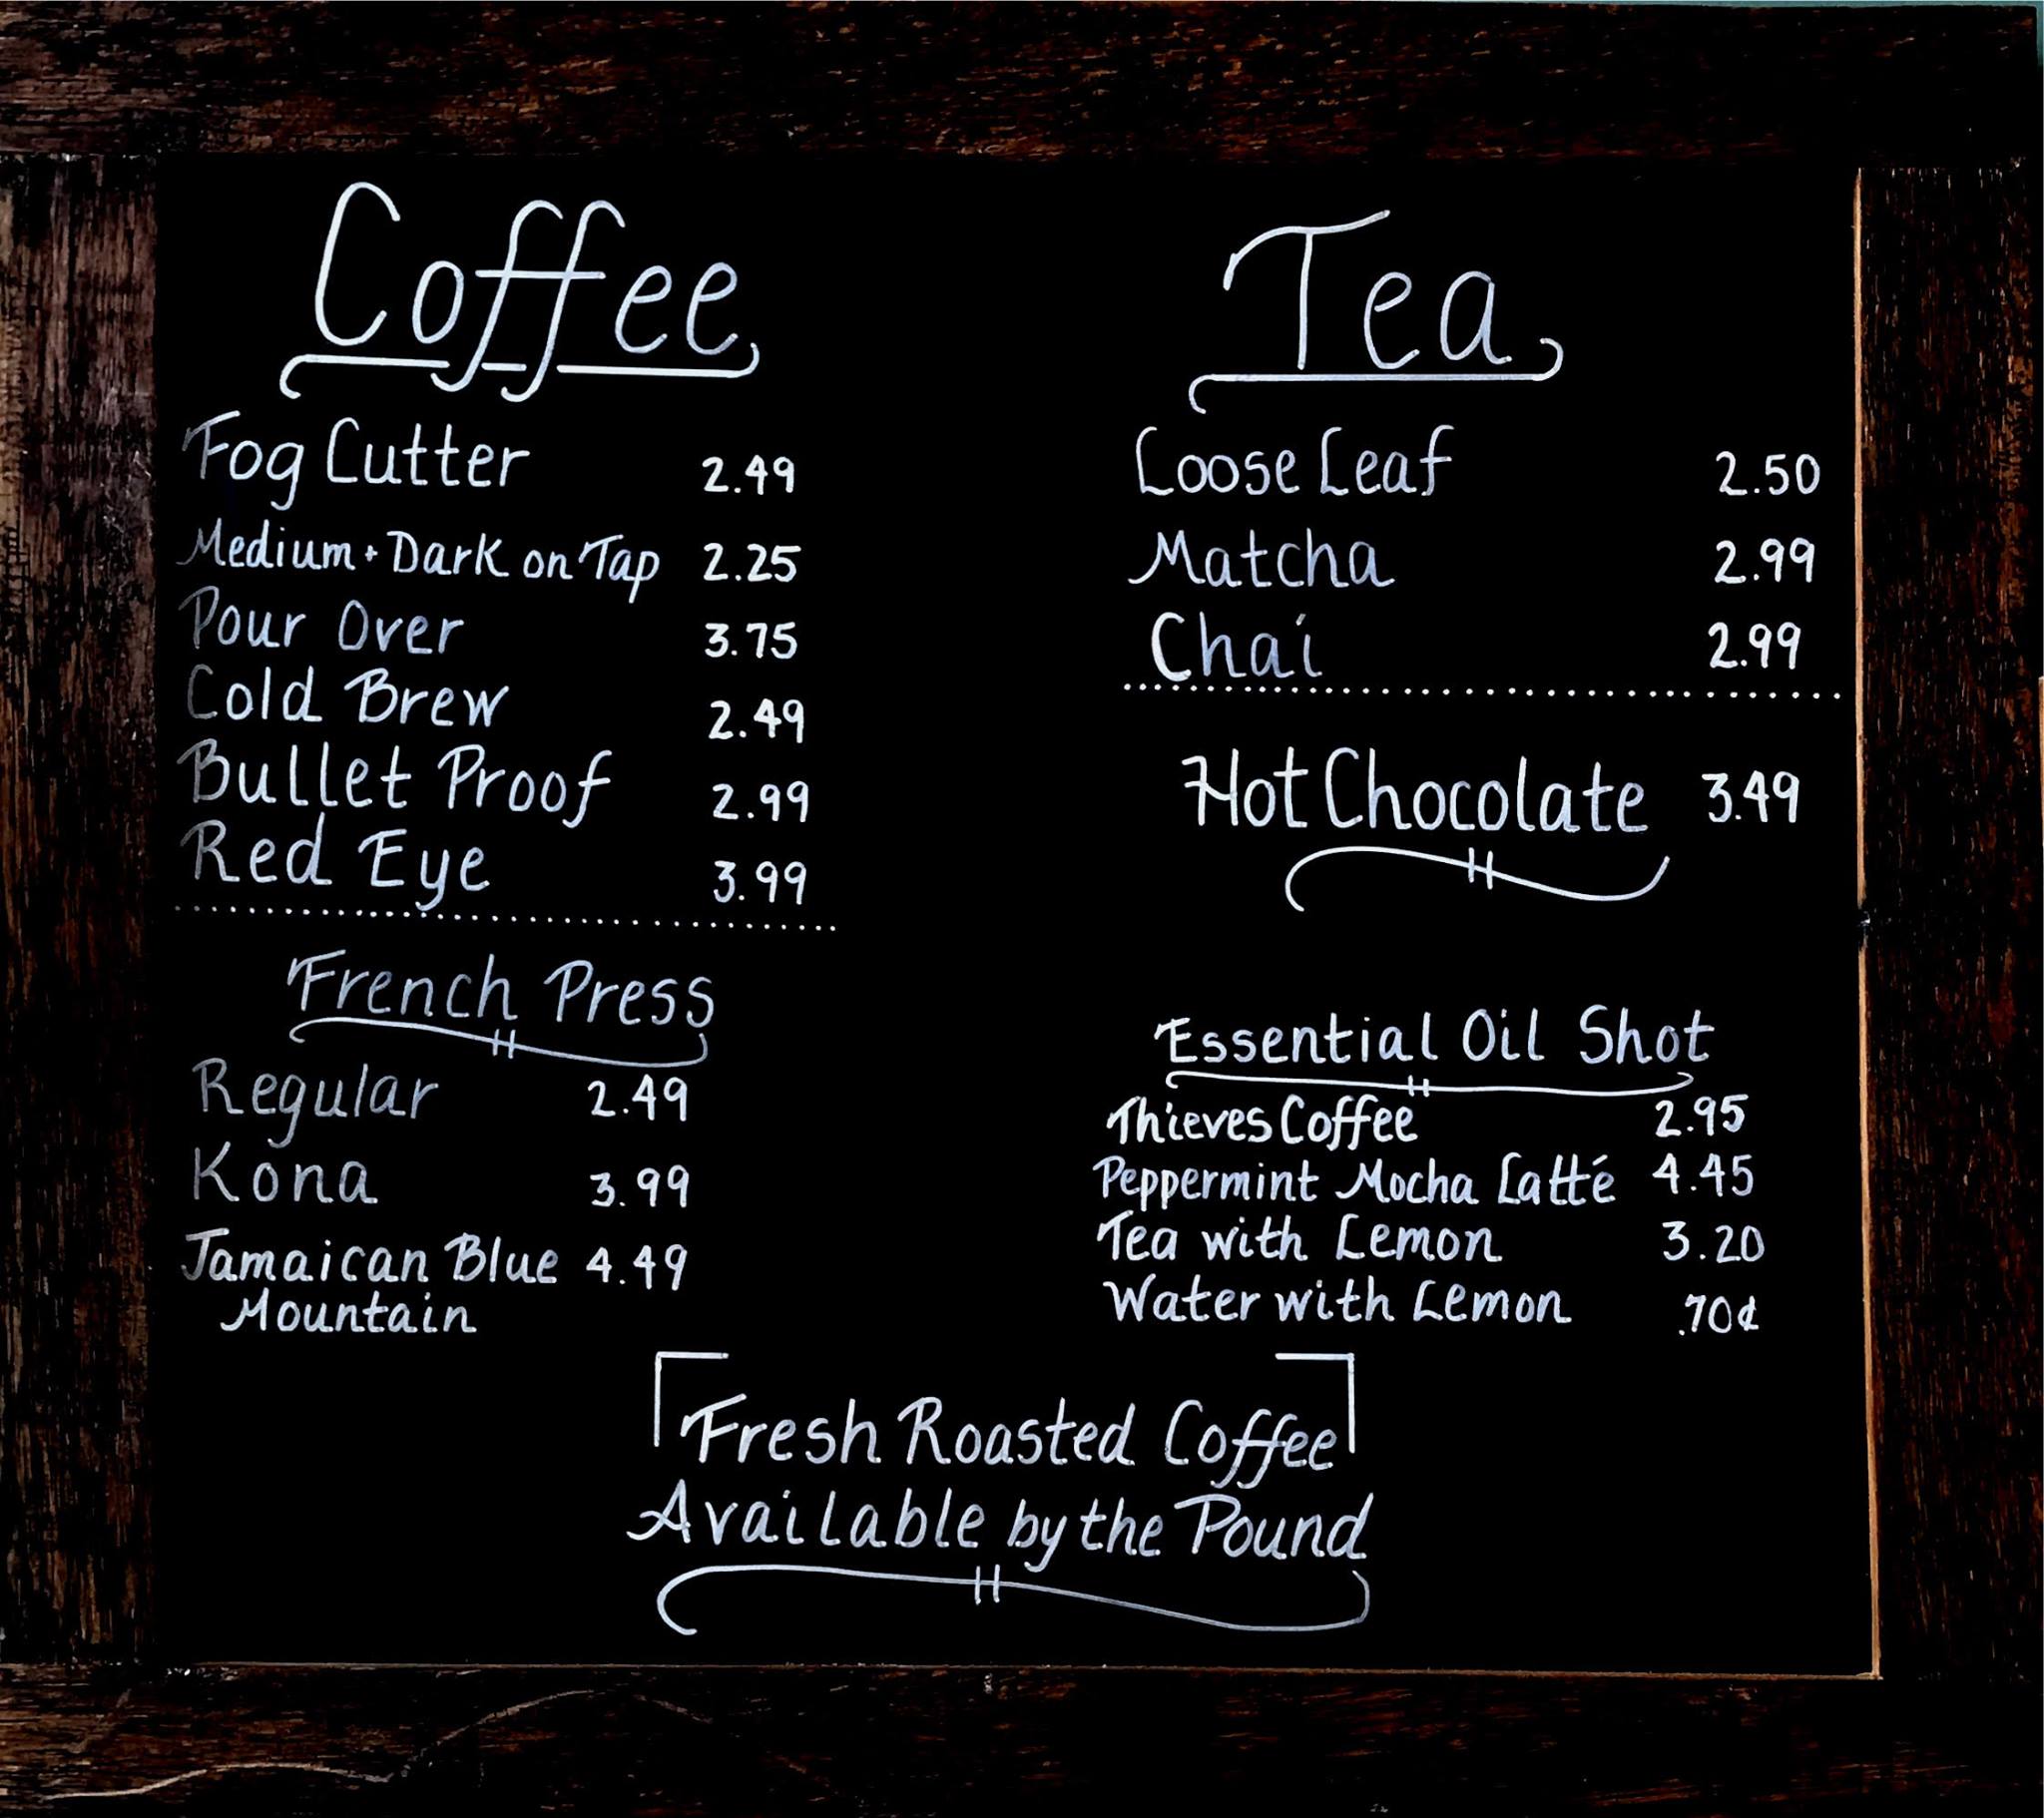 Coffee
Fog Cutter 2.49
Medium + Dark on Tap 2.25
Pour Over 3.75
Cold Brew 2.49
Bullet Proof 2.99
Red Eye 3.99
French Press
Regular 2.49
Kona 3.99
Jamaican Blue 4.49
Mountain
Tea
Loose Leaf 2.50
Matcha 2.99
Chai 2.99
Hot Chocolate 3.49
Essential Oil Shot
Thieves Coffee 2.95
Peppermint Mocha Latté 4.45
Tea with Lemon 3.20
Water with Lemon .70¢
Fresh Roasted Coffee
Available by the Pound